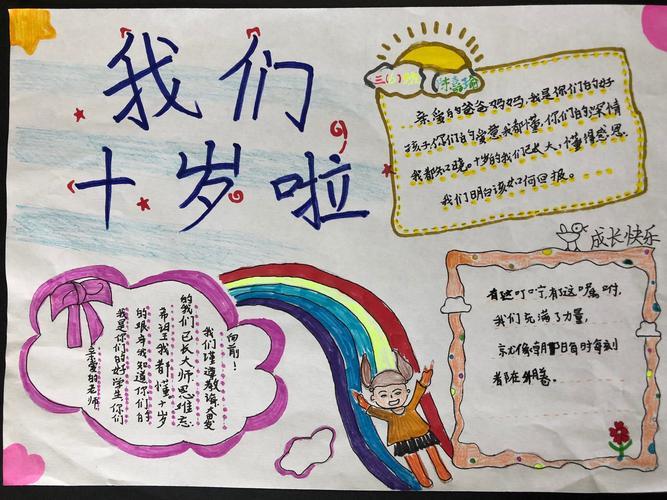 我们
十岁啦
三（）班
亲爱的爸爸妈妈，我是你们的好
孩子，你们的爱意我都懂，你们的深情
我都知晓。十岁的我们已长大，懂得感恩
我们明白该如何回报。
成长快乐
有这叮咛，有这嘱咐，
我们充满了力量，
就像每日每时每刻
都在
亲爱的老师，
我是你们的好学生，你们
的艰辛我知道，你们的
希望我都懂。十岁
的我们已长大，师恩难忘
我们谨遵教诲，大爱
向前！